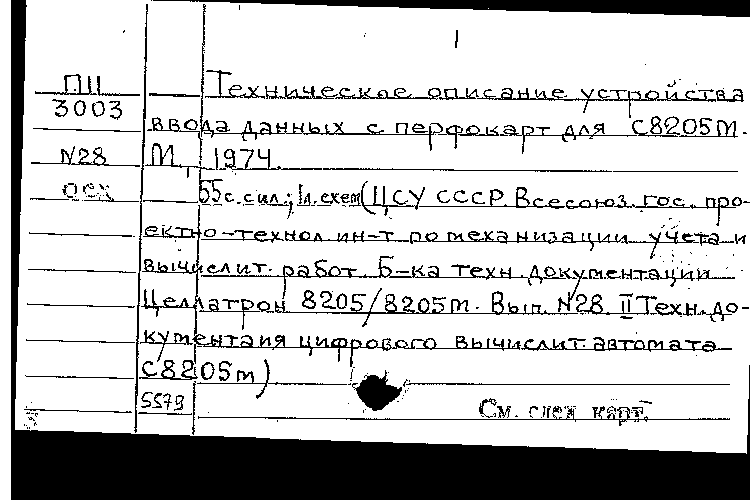 1
ПII Техническое описание устройства
3003 ввода данных с перфокарт для С8205М.
N28 М, 1974.
осх 55с. с ил.; 1л. схем (ЦСУ СССР. Всесоюз. гос. про-
ектно-технол. ин-т по механизации учета и
вычислит. работ. Б-ка техн. документации
Целлатрон 8205/8205м. Вып. N28. II Техн. до-
кументаия цифрового вычислит. автомата
С8205м)
5579
См. след карт.